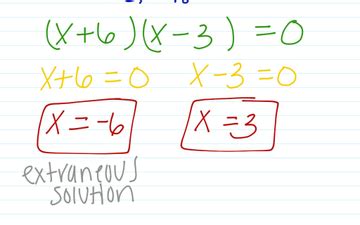 (x+6)(x-3) = 0
x+6=0 x-3=0
x=-6 x=3
extraneous
solution